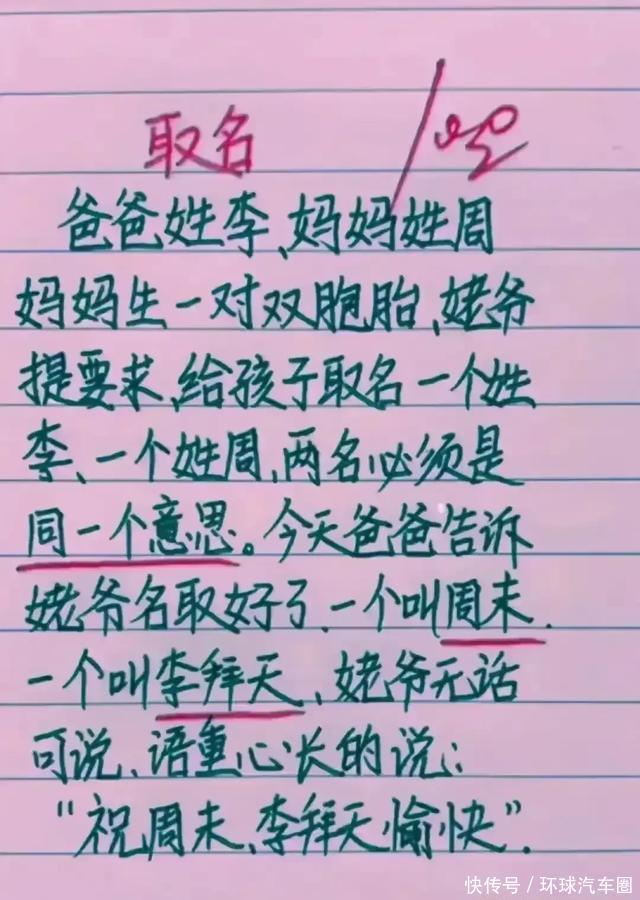 取名
爸爸姓李、妈妈姓周
妈妈生一对双胞胎、姥爷
提要求、给孩子取名一个姓
李、一个姓周,两名必须是
同一个意思。今天爸爸告诉
姥爷名取好了、一个叫周末.
一个叫李拜天、姥爷无话
可说、语重心长的说:
“祝周末、李拜天愉快”.
快传号/环球汽车圈